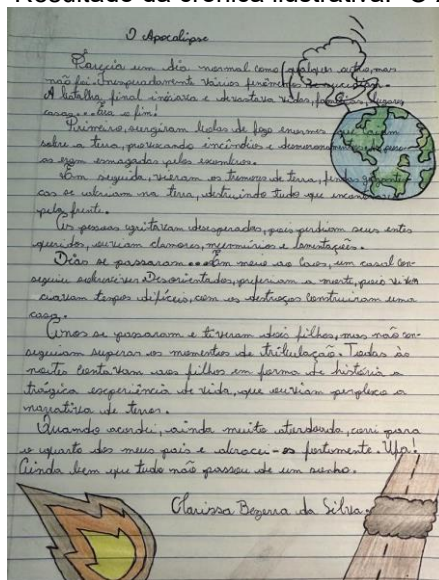 O Apocalipse
Parecia um dia normal como qualquer outro, mas
não foi. Inesperadamente vários fenômenos
A batalha final iniciava e devastava vidas, lugares
casas... Era o fim!
Primeiro, surgiram bolas de fogo enormes que caíam
sobre a terra, provocando incêndios e
as eram esmagadas pelos escombros.
Em seguida, vieram os tremores de terra, fendas
cas se abriam na terra, destruindo tudo que
pela frente.
As pessoas gritavam desesperadas, pois perdiam seus entes
queridos, ouviam clamores, murmúrios e lamentações.
Dias se passaram... Em meio ao caos, um casal con-
seguiu sobreviver. Desorientados, preferiam a morte, pois
ciavam tempos difíceis, com os destroços construíram uma
casa.
Anos se passaram e tiveram dois filhos, mas não con-
seguiam superar os momentos de tribulação. Todas as
noites contavam aos filhos em forma de história a
trágica experiência de vida, que ouviam perplexos a
narrativa de terror.
Quando acordei, ainda muito atordoada, corri para
o quarto dos meus pais e abracei-os fortemente. Ufa!
Ainda bem que tudo não passou de um sonho.
Clarissa Bezerra da Silva